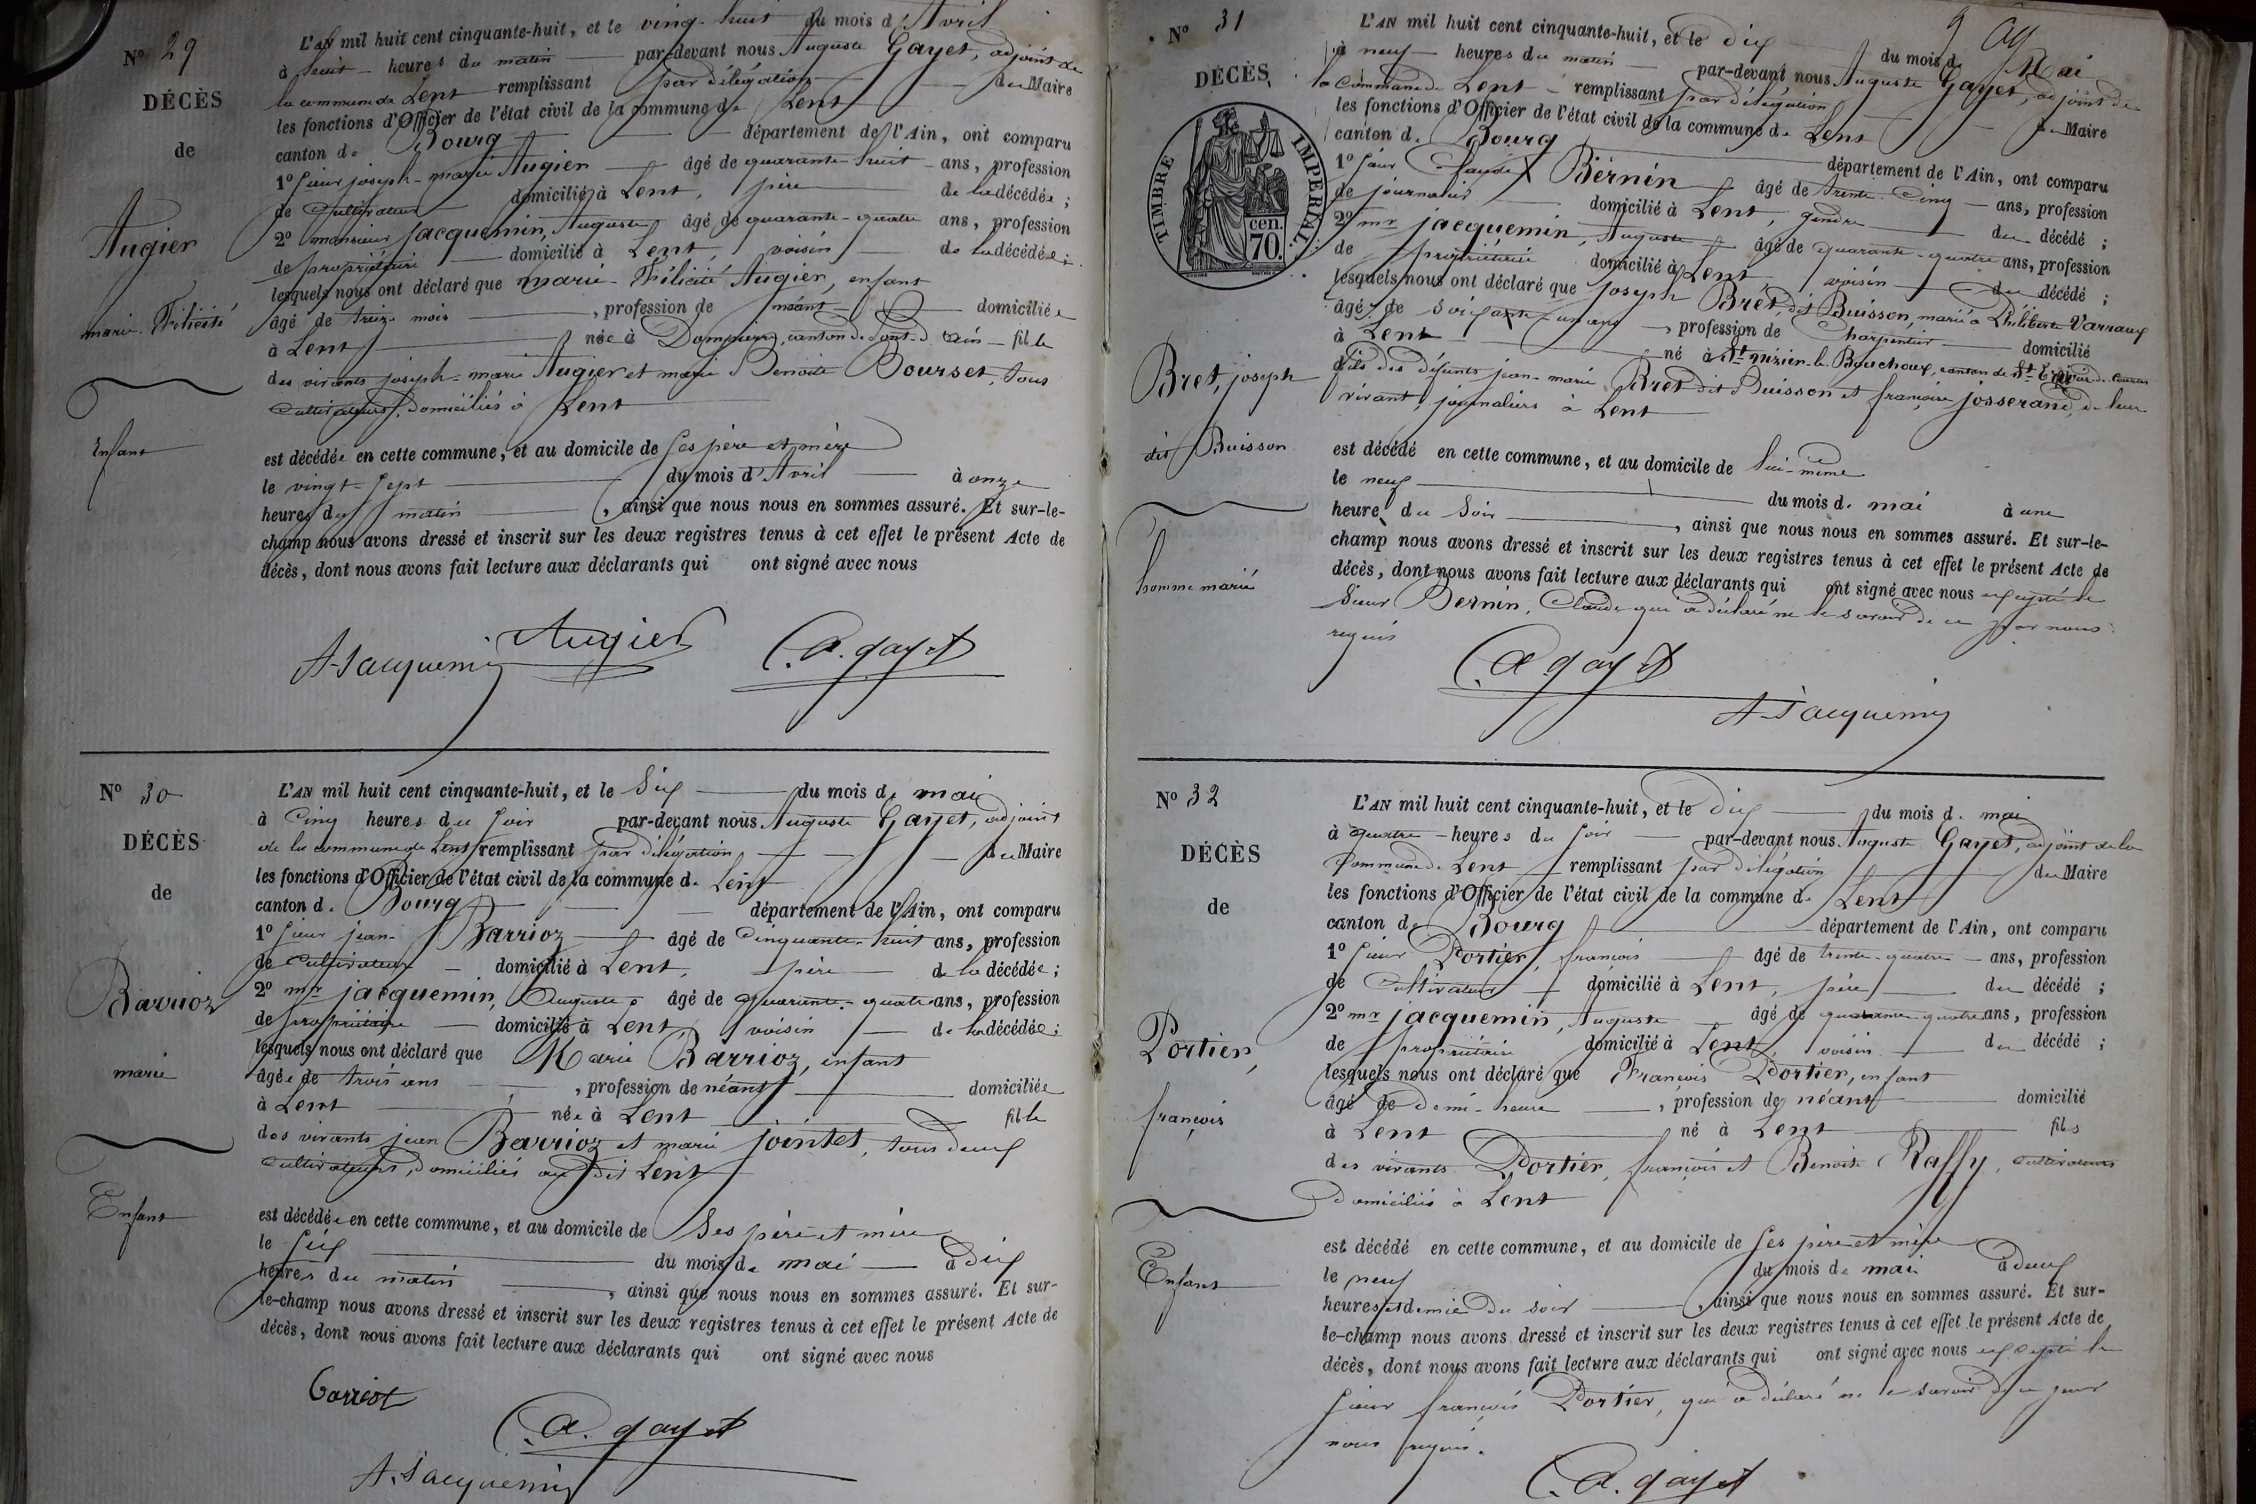 N° 29
DÉCÈS
de
Augier
marie Félicité
Enfant
L'AN mil huit cent cinquante-huit, et le vingt-huit du mois d'Avril
à huit heures du matin par-devant nous Auguste Gayet, adjoint de
la commune de Lent remplissant par délégation du Maire
les fonctions d'Officier de l'état civil de la commune de Lent
canton de Bourg département de l'Ain, ont comparu
1° sieur joseph-marie Augier âgé de quarante-huit ans, profession
de cultivateur domicilié à Lent, père de la décédée ;
2° monsieur jacquemin, Auguste âgé de quarante-quatre ans, profession
de propriétaire domicilié à Lent, voisin de la décédée ;
lesquels nous ont déclaré que marie-Félicité Augier, enfant
âgé de treize mois, profession de néant domiciliée
à Lent née à Dompierre, canton de Pont-d'ain fille
des vivants joseph-marie Augier et marie Benoite Bourset, tous
cultivateurs, domiciliés à Lent
est décédée en cette commune, et au domicile de ses père et mère
le vingt-sept du mois d'Avril à onze
heures du matin, ainsi que nous nous en sommes assuré. Et sur-le-
champ nous avons dressé et inscrit sur les deux registres tenus à cet effet le présent Acte de
décès, dont nous avons fait lecture aux déclarants qui ont signé avec nous
A. Jacquemin Augier A. gayet
N° 30
DÉCÈS
de
Barrioz
marie
Enfant
L'AN mil huit cent cinquante-huit, et le Six du mois de mai
à Cinq heures du soir par-devant nous Auguste Gayet, adjoint
de la commune de Lent remplissant par délégation du Maire
les fonctions d'Officier de l'état civil de la commune de Lent
canton de Bourg département de l'Ain, ont comparu
1° sieur jean Barrioz âgé de Cinquante-huit ans, profession
de cultivateur domicilié à Lent, père de la décédée ;
2° mr jacquemin, Auguste âgé de quarante-quatre ans, profession
de propriétaire domicilié à Lent voisin de la décédée ;
lesquels nous ont déclaré que Marie Barrioz, enfant
âgée de trois ans, profession de néant domiciliée
à Lent née à Lent fille
des vivants jean Barrioz et marie jointet, tous deux
cultivateurs, domiciliés au dit Lent
est décédée en cette commune, et au domicile de Ses père et mère
le six du mois de mai à dix
heures du matin, ainsi que nous nous en sommes assuré. Et sur-
le-champ nous avons dressé et inscrit sur les deux registres tenus à cet effet le présent Acte de
décès, dont nous avons fait lecture aux déclarants qui ont signé avec nous
A. gayet
A. Jacquemin
N° 31
DÉCÈS
TIMBRE IMPERIAL
70 cen.
Bret, joseph
dit Buisson
homme marié
L'AN mil huit cent cinquante-huit, et le dix du mois de Mai
à neuf heures du matin par-devant nous Auguste Gayet, adjoint de
la commune de Lent remplissant par délégation du Maire
les fonctions d'Officier de l'état civil de la commune de Lent
canton de Bourg département de l'Ain, ont comparu
1° sieur Claude Bernin âgé de trente-Cinq ans, profession
de journalier domicilié à Lent, gendre du décédé ;
2° mr jacquemin, Auguste âgé de quarante-quatre ans, profession
de propriétaire domicilié à Lent voisin du décédé ;
lesquels nous ont déclaré que joseph Bret, dit Buisson, marié à Philiberte Varraux
âgé de soixante-un ans, profession de Charpentier domicilié
à Lent né à St nizier-le-Bouchoux, canton de St Trivier-de-Courtes
fils des défunts jean-marie Bret dit Buisson et françoise josserand, de leur
vivant, journaliers à Lent
est décédé en cette commune, et au domicile de lui-même
le neuf du mois de mai à une
heure du soir, ainsi que nous nous en sommes assuré. Et sur-le-
champ nous avons dressé et inscrit sur les deux registres tenus à cet effet le présent Acte de
décès, dont nous avons fait lecture aux déclarants qui ont signé avec nous excepté le
sieur Bernin, Claude qui a déclaré ne le savoir de ce par nous
requis
A gayet
A. Jacquemin
N° 32
DÉCÈS
de
Portier,
françois
Enfant
L'AN mil huit cent cinquante-huit, et le dix du mois de mai
à quatre heures du soir par-devant nous Auguste Gayet, adjoint de la
commune de Lent remplissant par délégation du Maire
les fonctions d'Officier de l'état civil de la commune de Lent
canton de Bourg département de l'Ain, ont comparu
1° sieur Portier, françois âgé de trente-quatre ans, profession
de Cultivateur domicilié à Lent, père du décédé ;
2° mr jacquemin, Auguste âgé de quarante-quatre ans, profession
de propriétaire domicilié à Lent, voisin du décédé ;
lesquels nous ont déclaré que François Portier, enfant
âgé de demi-heure, profession de néant domicilié
à Lent né à Lent fils
des vivants Portier, françois et Benoite Raffy, cultivateurs
domiciliés à Lent
est décédé en cette commune, et au domicile de ses père et mère
le neuf du mois de mai à deux
heures et demie du soir, ainsi que nous nous en sommes assuré. Et sur-
le-champ nous avons dressé et inscrit sur les deux registres tenus à cet effet le présent Acte de
décès, dont nous avons fait lecture aux déclarants qui ont signé avec nous excepté le
sieur françois Portier, qui a déclaré ne le savoir de ce par
nous requis.
A. gayet